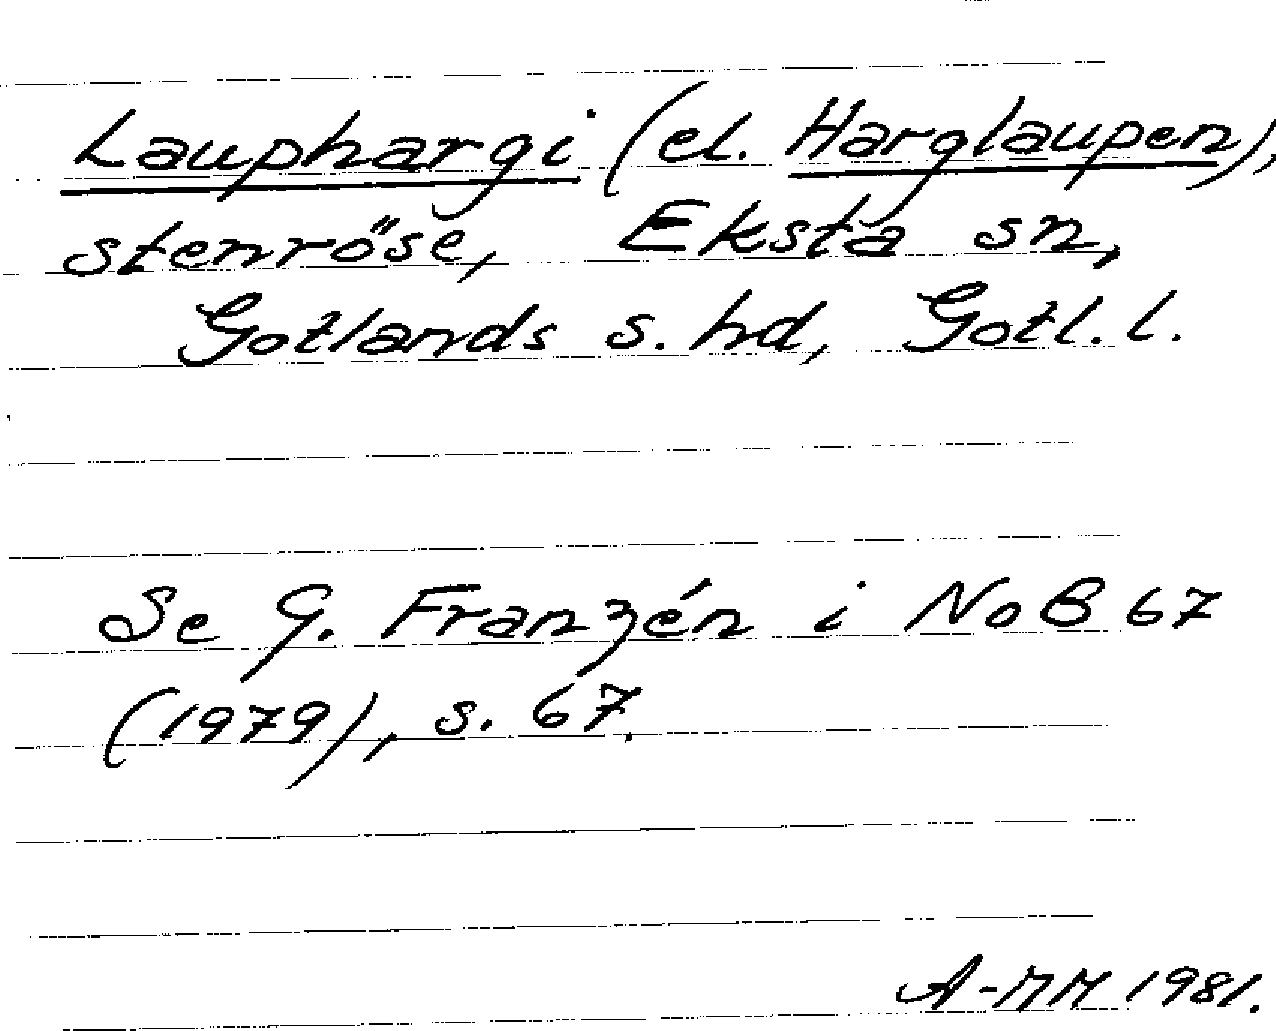 Lauphargi (el. Harglaupen),
stenröse, Eksta sn,
Gotlands s. hd, Gotl. l.
Se G. Franzén i NoB 67
(1979), s. 67.
A-MM 1981.